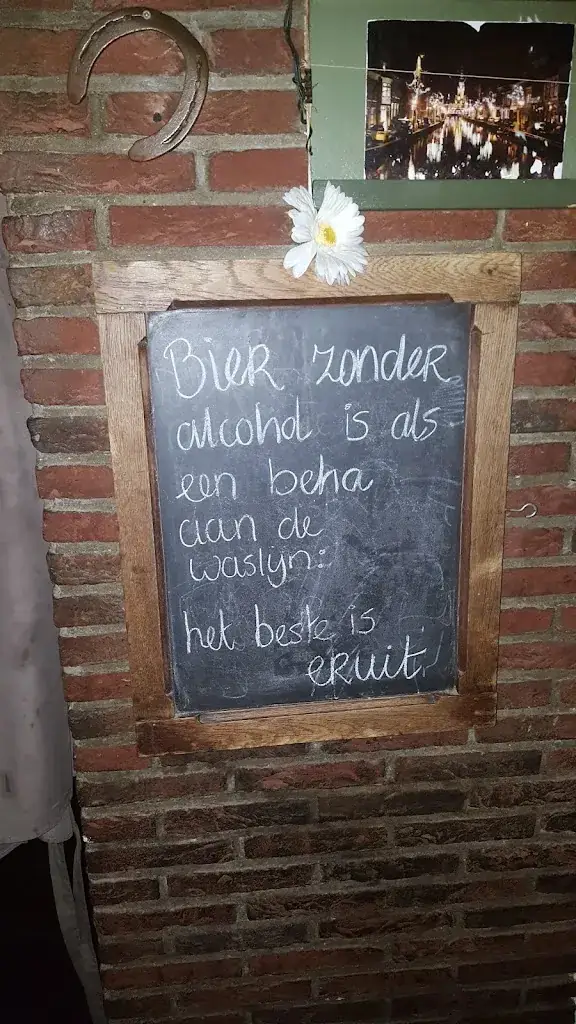 Bier zonder
alcohol is als
een beha
aan de
waslijn:
het beste is
eruit